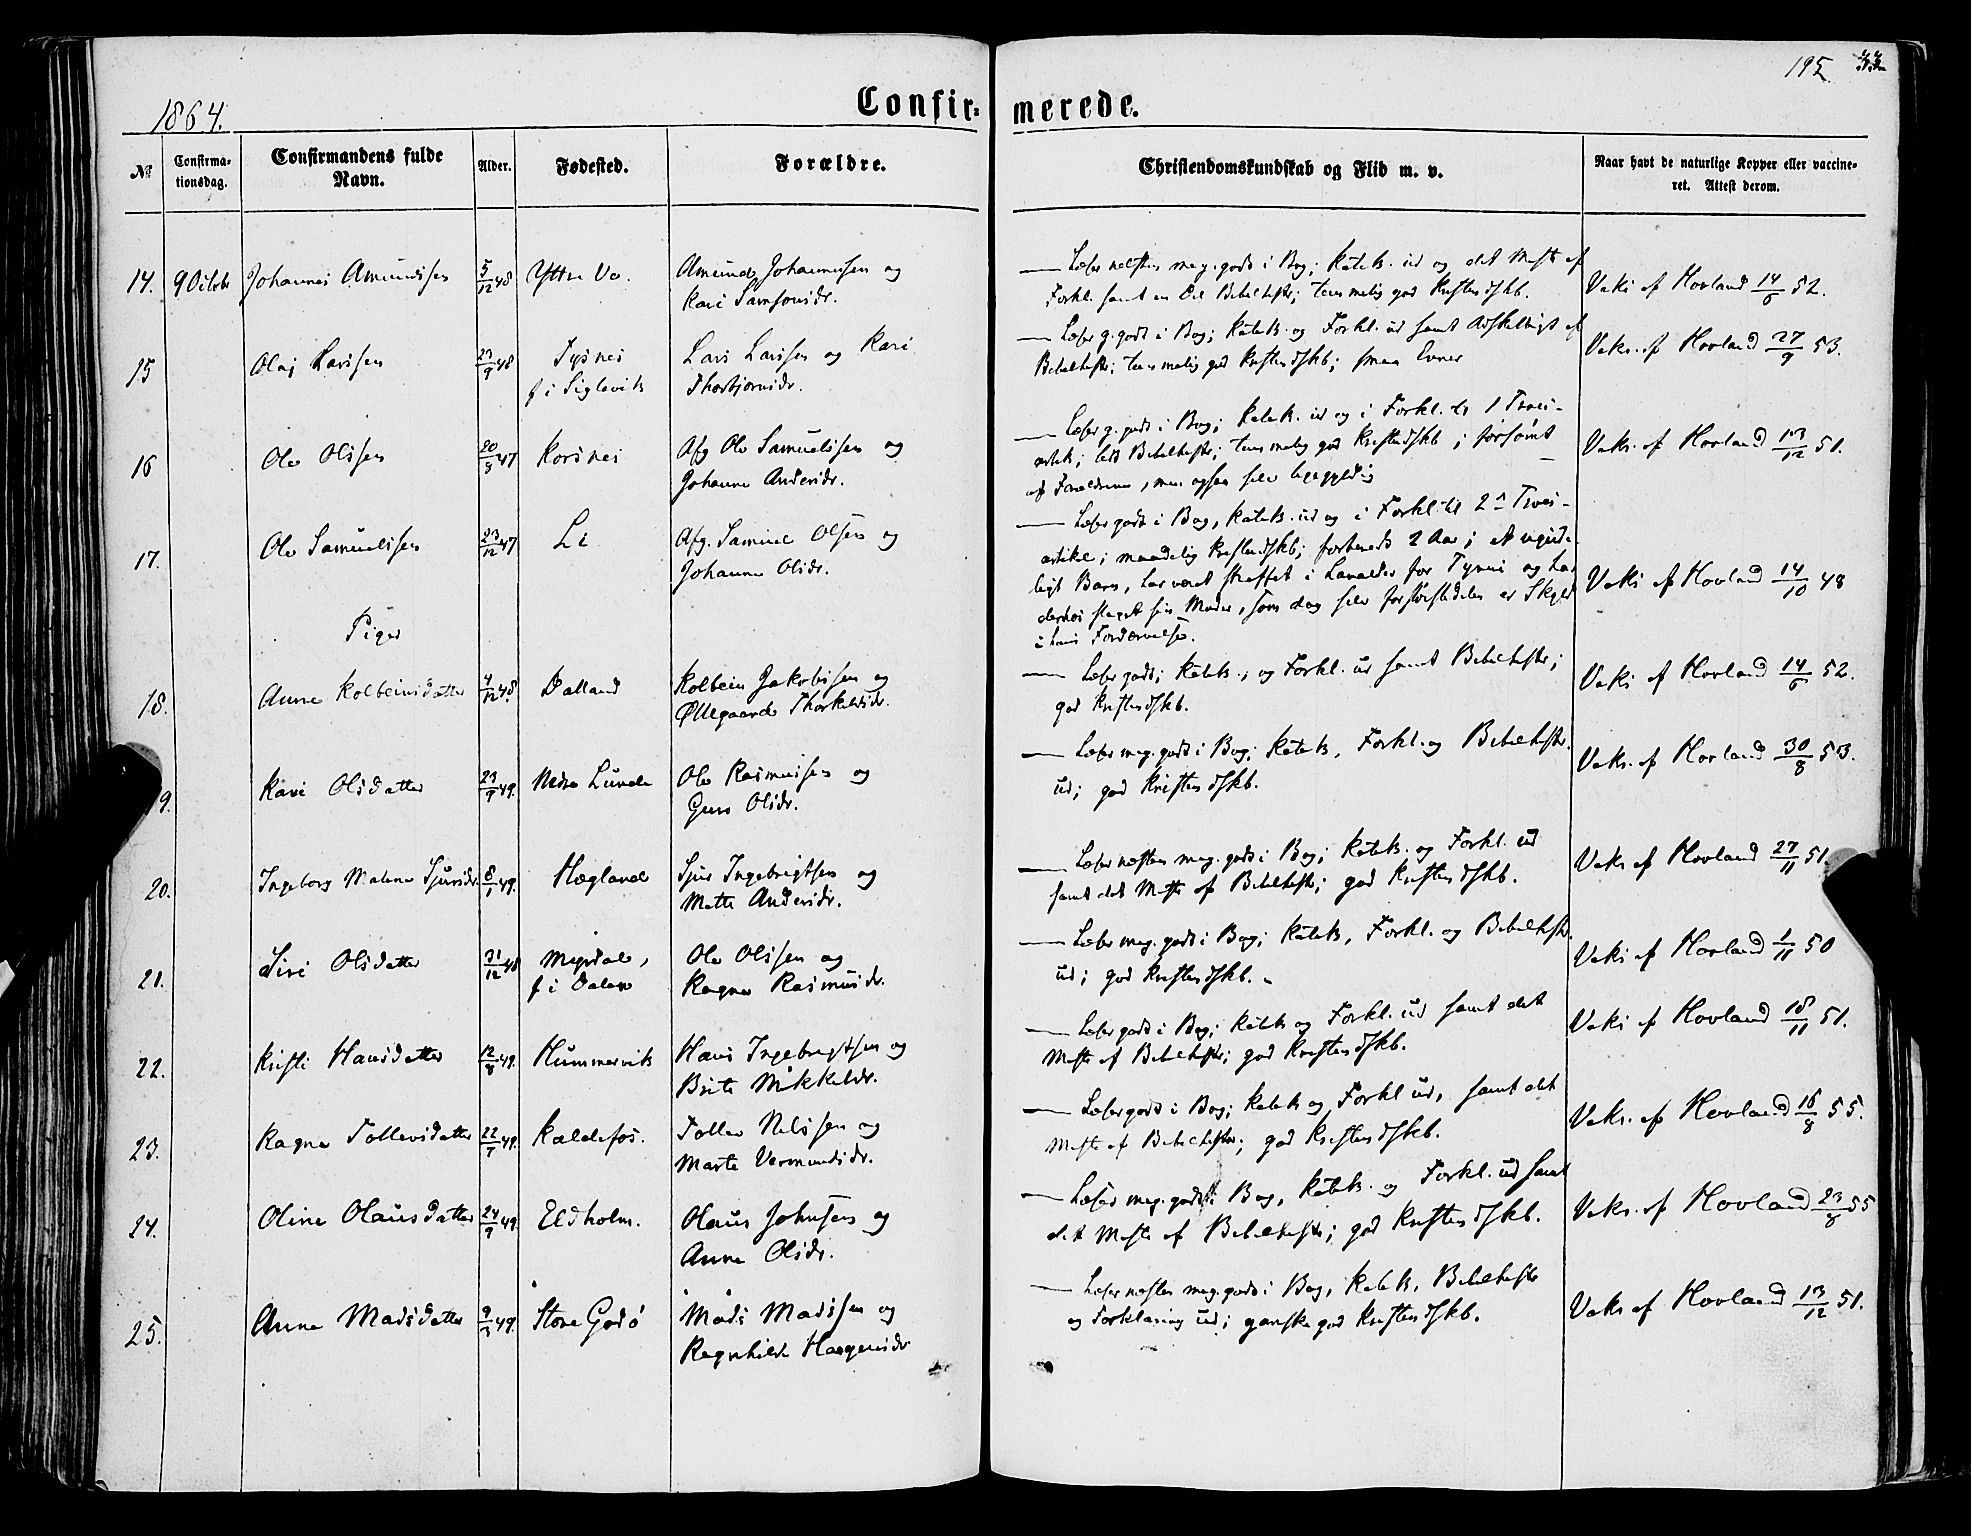 195
1864.
Confir-
merede.
No
Confirma-
tionsdag.
Confirmandens fulde
Navn.
Alder.
Fødested.
Forældre.
Christendomskundskab og Flid m. v.
Naar havt de naturlige Kopper eller vaccine-
ret. Attest derom.
14. 9 Octobr Johannes Amundsen 5/12 48 Yttre Vo. Amund Johannesen og
Kari Samsonsdr.
— Læser næsten meg. godt i Bog; Katek. ud og det Meste af
Forkl. samt en Del Bibelhistr; temmelig god Kristendskb.
Vaks af Hovland 14/6 52.
15 Olaj Larssen 23/9 48 Tysnes
f i Siglevik
Lars Larssen og Kari
Thorbjørnsdr.
— Læser g. godt i Bog; Katek. og Forkl. ud samt Adskilligt af
Bibelhistr; temmelig god Kristendskb; smaa Evner
Vaks. af Hovland 27/9 53.
16 Ole Olssen 20/9 47 Korsnes Afg Ole Samuelssen og
Johanna Andersdr.
— Læser g. godt i Bog; Katek. ud og i Forkl. til 1 Troes-
artik; lidt Bibelhistr; temmelig god Kristendskb; forsømt
af Forældrene, men ogsaa selv ligegyldig
Vaks. af Hovland 13/12 51.
17. Ole Samuelssen 23/12 47 Li Afg. Samuel Olsen og
Johanna Olsdr.
— Læser godt i Bog, Katek. ud og i Forkl. til 2n Troes-
artikel; maadelig Kristendskb; forberedt 2 Aar; et ugude-
ligt Barn, har været straffet i Lavalder for Tyveri og har
derhos slaget sin Moder, som dog selv forstørstedelen er Skyld
i hans Fordærvelse.
Vaks af Hovland 14/10 48
Piger
18. Anna Kolbeinsdatter 4/12 48. Dalland Kolbein Jakobssen og
 Øllegaard Thorkelsdr.
— Læser godt; Katek., og Forkl. ud samt Bibelhistr;
god Kristendskb.
Vaks af Hovland 14/6 52.
9. Kari Olsdatter 23/9 49. Nedre Lunde Ole Rasmussen og
Guro Olsdr.
— Læser meg. godt i Bog; Katek, Forkl. og Bibelhistr.
ud; god Kristendskb.
Vaks. af Hovland 30/8 53.
20. Ingeborg Malena Sjursdr. 8/1 49. Høgland Sjur Ingebrigtsen og
Mette Andersdr.
— Læser næsten meg. godt i Bog; Katek. og Forkl. ud
samt det Meste af Bibelhistr; god Kristendskb.
Vaks af Hovland 27/11 51
21. Siri Olsdatter 31/12 48 Myrdal,
f i Dalen
Ole Olssen og
Ragna Rasmusdr.
— Læser meg. godt i Bog; Katek, Forkl. og Bibelhistr.
ud; god Kristendskb.
Vaks af Hovland 1/11 50
22. Kristi Hansdatter 12/8 49. Hummervik Hans Ingebrigtsen og
Brita Mikkelsdr.
— Læser godt i Bog; Katek og Forkl. ud samt det
Meste af Bibelhistr; god Kristendskb.
Vaks af Hovland 18/11 51.
23. Ragna Tollevsdatter 22/7 49. Kaldefos. Tollev Nilssen og
Marta Vermundsdr.
— Læser godt i Bog; Katek og Forkl ud, samt det
Meste af Bibelhistr; god Kristendskb.
Vaks. af Hovland 16/8 55.
24. Oline Olausdatter 24/9 49 Eldholm. Olaus Johnsen og
Anna Olsdr.
— Læser meg. godt i Bog, Katek. og Forkl. ud samt
det Meste af Bibelhistr; god Kristendskb.
Vaks. af Hovland 23/8 55
25. Anna Madsdatter 9/3 49. Store Godø Mads Madssen og
Ragnhilda Haagensdr
— Læser næsten meg. godt i Bog, Katek, Bibelhistr
og Forklaring ud; ganske god Kristendskb.
Vaks af Hovland 13/12 51.